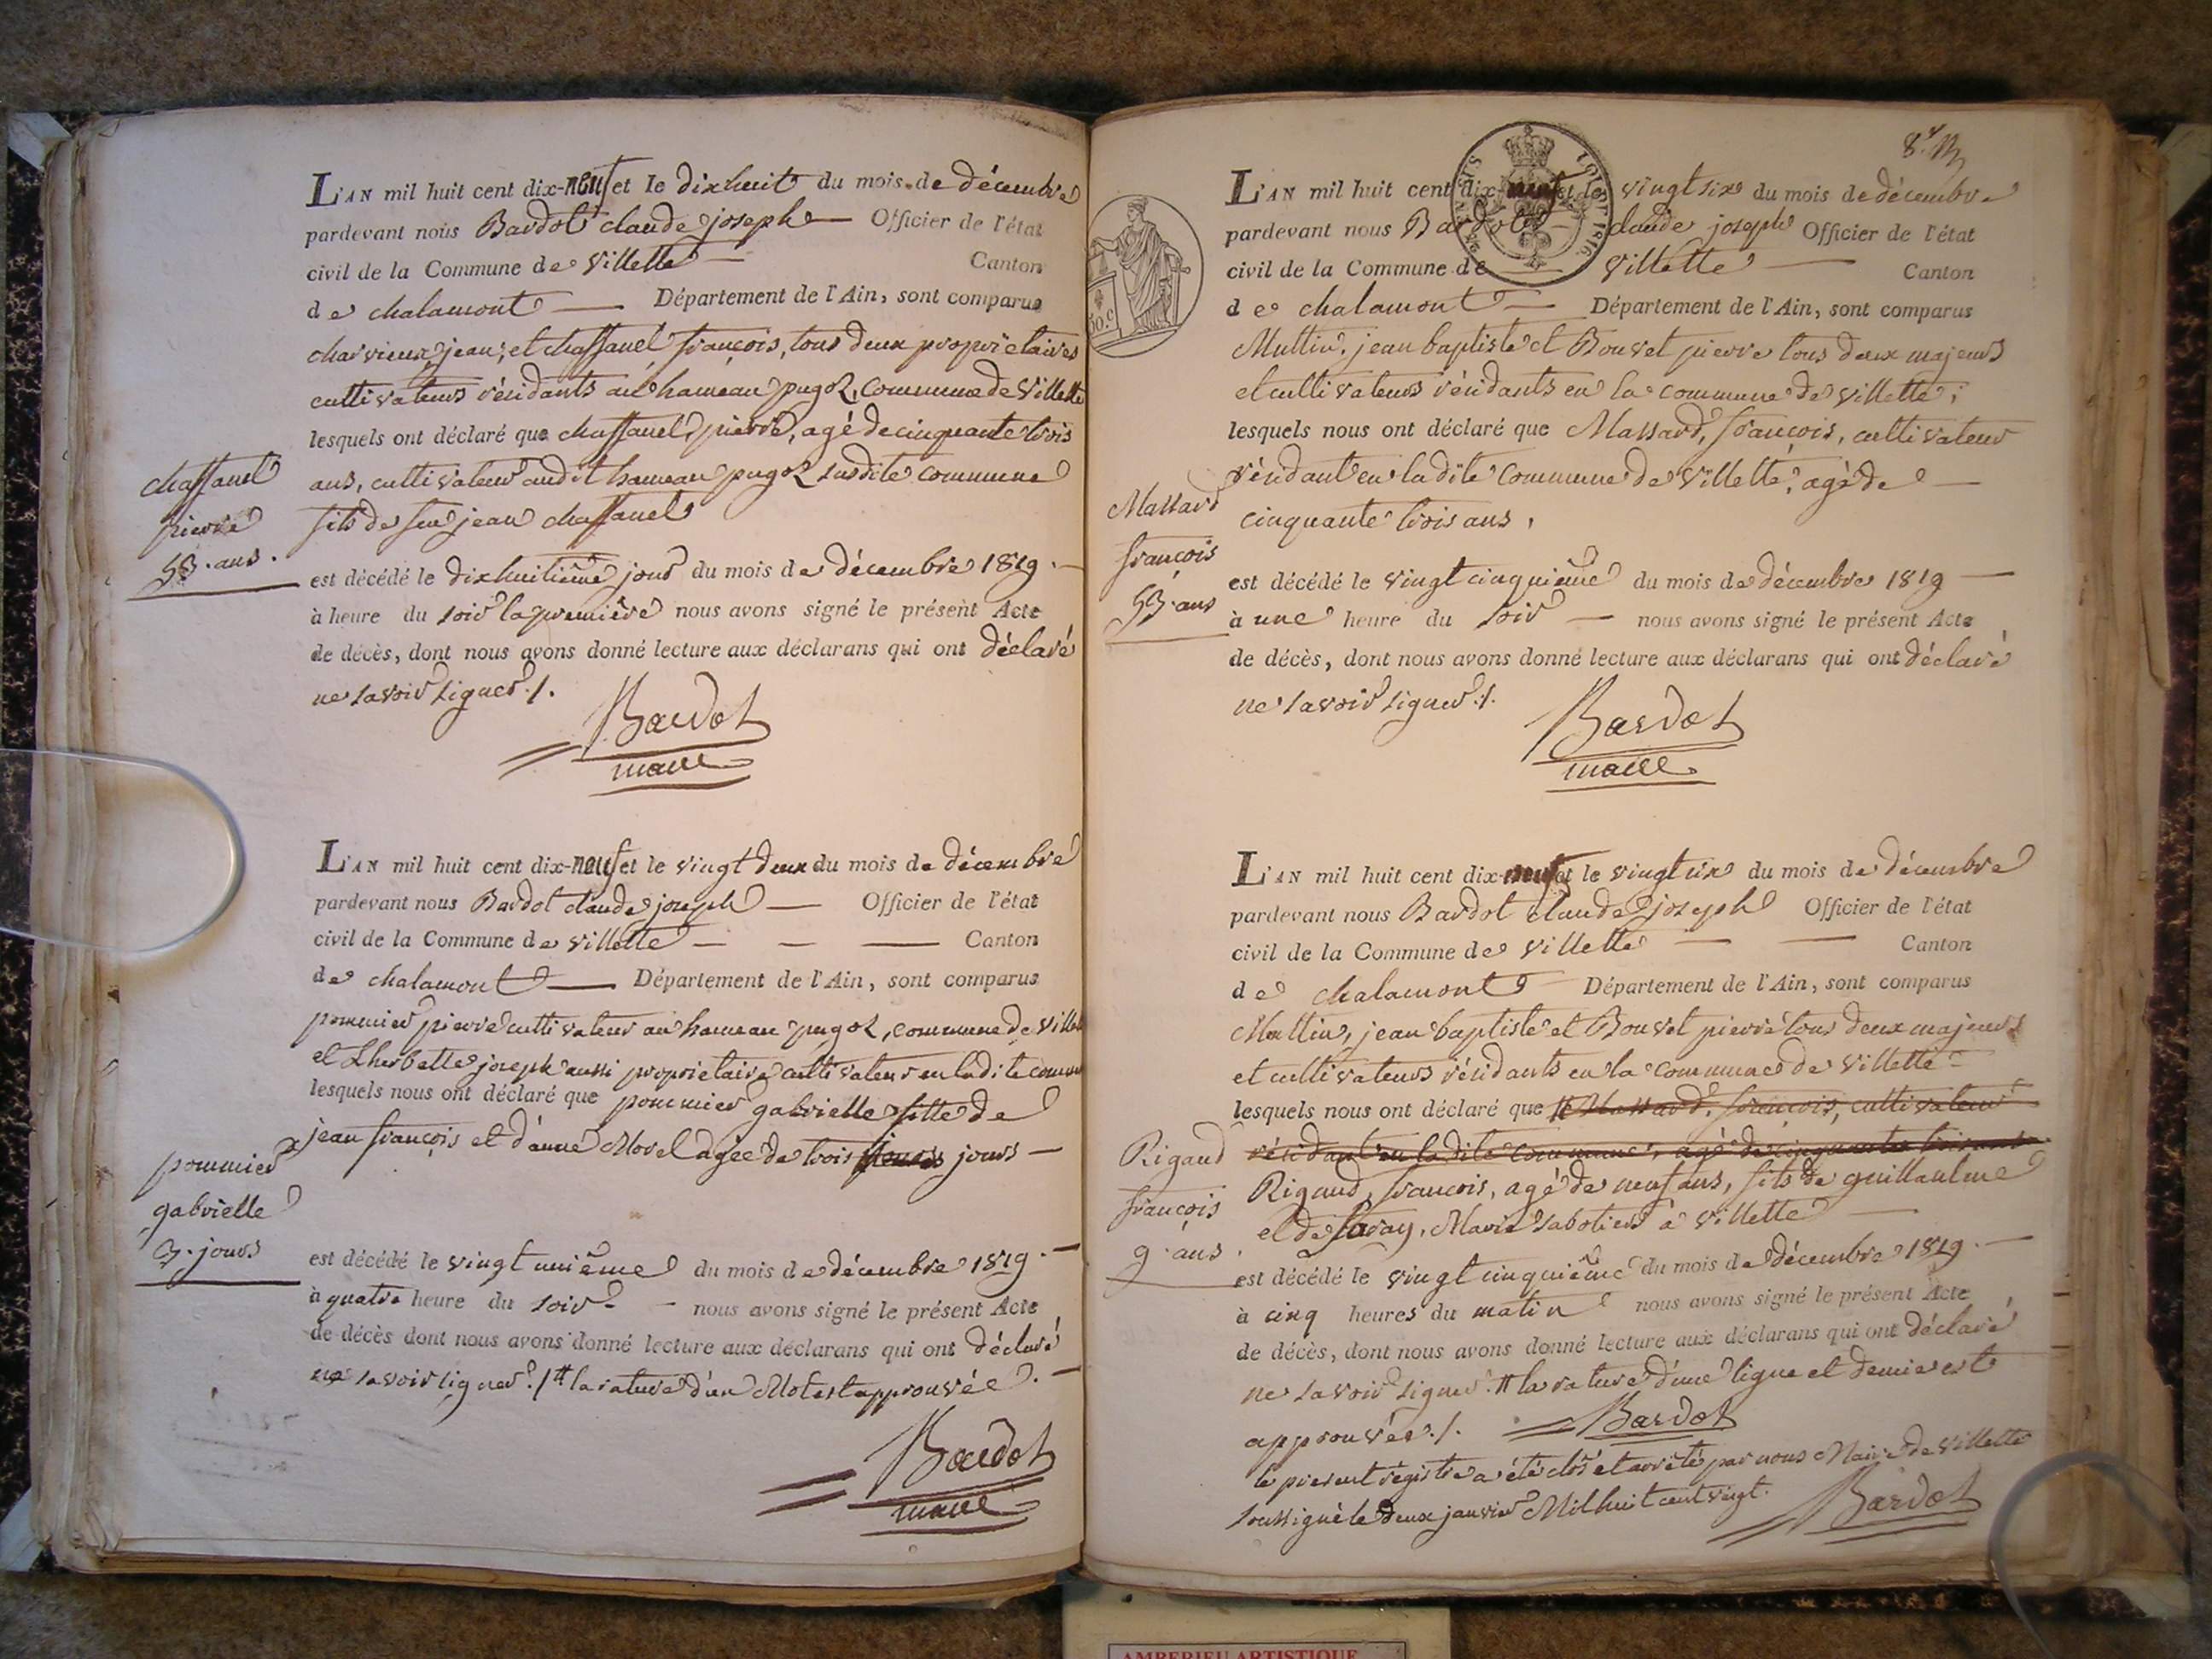 L'AN mil huit cent dix-neuf et le dixhuit du mois de décembre
pardevant nous Bardot claude joseph — Officier de l'état
civil de la Commune de villette — Canton
de chalamont — Département de l'Ain, sont comparus
charvieux jean, et chaffanel françois, tous deux propriétaires
cultivateurs résidants au hameau pugoz, commune de villette
lesquels ont déclaré que chaffanel pierre, agé de cinquante trois
ans, cultivateur audit hameau pugoz susdite commune
fils de feu jean chaffanel
chaffanel
pierre
53. ans.
est décédé le dixhuitième jour du mois de décembre 1819. —
à heure du soir la première nous avons signé le présent Acte
de décès, dont nous avons donné lecture aux déclarans qui ont déclaré
ne savoir signer ./.
Bardot
maire
L'AN mil huit cent dix-neuf et le vingt deux du mois de décembre
pardevant nous Bardot claude joseph — Officier de l'état
civil de la Commune de villette — — — Canton
de chalamont — Département de l'Ain, sont comparus
pommier pierre cultivateur au hameau pugoz, commune de villette
et Lherbette joseph aussi proprietaire cultivateur en ladite commune
lesquels nous ont déclaré que pommier gabrielle fille de
jean françois et d'anne Morel agée de trois jours —
pommier
gabrielle
3. jours
est décédé le vingt unième du mois de décembre 1819. —
à quatre heure du soir — nous avons signé le présent Acte
de décès dont nous avons donné lecture aux déclarans qui ont déclaré
ne savoir signer ./# la rature d'un Mot est approuvée. —
Bardot
maire
8.
L'AN mil huit cent dix-neuf et le vingt six du mois de décembre
pardevant nous Bardot — claude joseph Officier de l'état
civil de la Commune de — villette — Canton
de chalamont — Département de l'Ain, sont comparus
Muttin, jean baptiste et Bouvet pierre tous deux majeurs
et cultivateurs résidants en la commune de villette;
lesquels nous ont déclaré que Massard, françois, cultivateur
résidant en ladite commune de villette, agé de —
cinquante trois ans,
Massard
françois
53. ans
est décédé le vingt cinquième du mois de décembre 1819 —
à une heure du soir — nous avons signé le présent Acte
de décès, dont nous avons donné lecture aux déclarans qui ont déclaré
ne savoir signer ./.
Bardot
maire
50. c
L'AN mil huit cent dix-neuf et le vingt six du mois de décembre
pardevant nous Bardot claude joseph Officier de l'état
civil de la Commune de villette — — Canton
de chalamont Département de l'Ain, sont comparus
Muttin, jean baptiste et Bouvet pierre tous deux majeurs
et cultivateurs résidants en la commune de villette —
lesquels nous ont déclaré que # Massard, françois, cultivateur
résidant en ladite commune, agé de cinquante trois ans
Rigaud, françois, agé de neuf ans, fils de guillaulme
et de Marie sabotier à villette —
Rigaud
françois
9. ans.
est décédé le vingt cinquième du mois de décembre 1819. —
à cinq heures du matin nous avons signé le présent Acte
de décès, dont nous avons donné lecture aux déclarans qui ont déclaré
ne savoir signer. # la rature d'une ligne et demie est
approuvée ./. Bardot
le present régistre a été clos et arrêté par nous Maire de villette
soussigné le deux janvier Mil huit cent vingt.
Bardot
AMBERIEU ARTISTIQUE